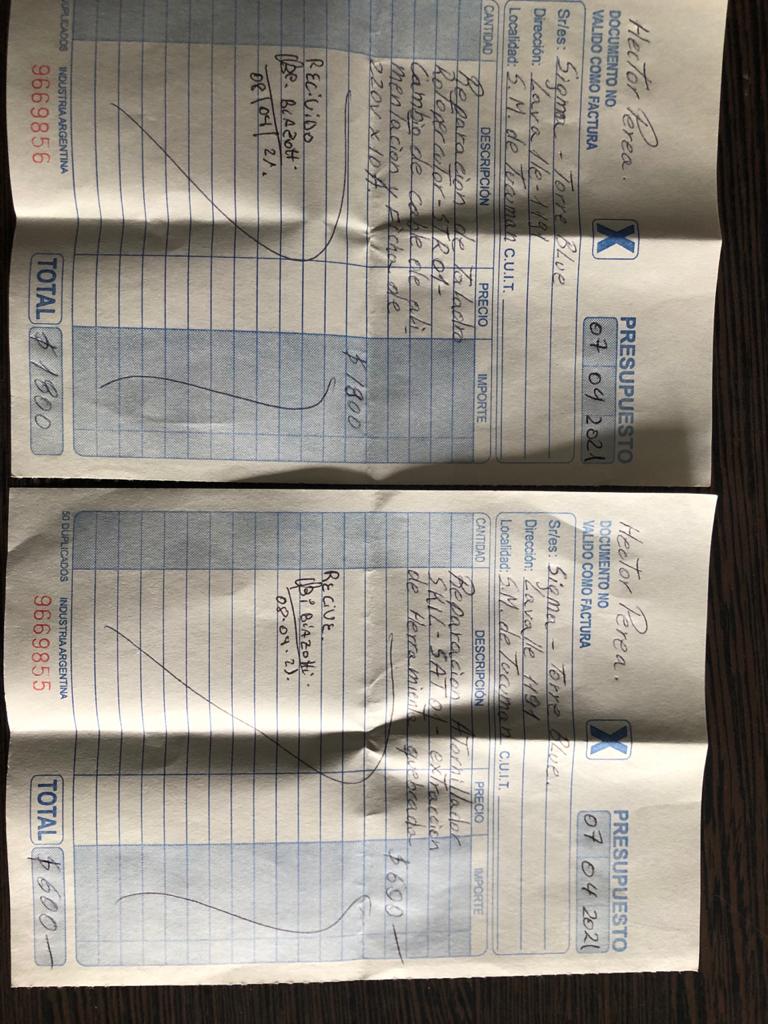 Hector Perea.
X
PRESUPUESTO
DOCUMENTO NO
VALIDO COMO FACTURA
07 04 2021
Sr/es: Sigma - Torre Blue
Dirección: Lavalle - 1191
Localidad: S.M. de Tucuman C.U.I.T.
CANTIDAD DESCRIPCIÓN PRECIO IMPORTE
Reparacion de Taladro
Rotopercutor - STR01 -
Cambio de cable de ali
mentacion y Ficha de
220V x 10A.
$ 1800
RECIVIDO
BIAZOTTI
08/04/21.
DUPLICADOS INDUSTRIA ARGENTINA
9669856
TOTAL $ 1800
Hector Perea.
X
PRESUPUESTO
DOCUMENTO NO
VALIDO COMO FACTURA
07 04 2021
Sr/es: Sigma - Torre Blue.
Dirección: Lavalle 1191
Localidad: S.M. de Tucuman C.U.I.T.
CANTIDAD DESCRIPCIÓN PRECIO IMPORTE
Reparacion ATornillador
SKIL - SAT01 - extraccion
de Herramienta quebrada
$ 600 —
RECIVE.
BIAZOTTI.
08.04.21.
50 DUPLICADOS INDUSTRIA ARGENTINA
9669855
TOTAL $ 600 —